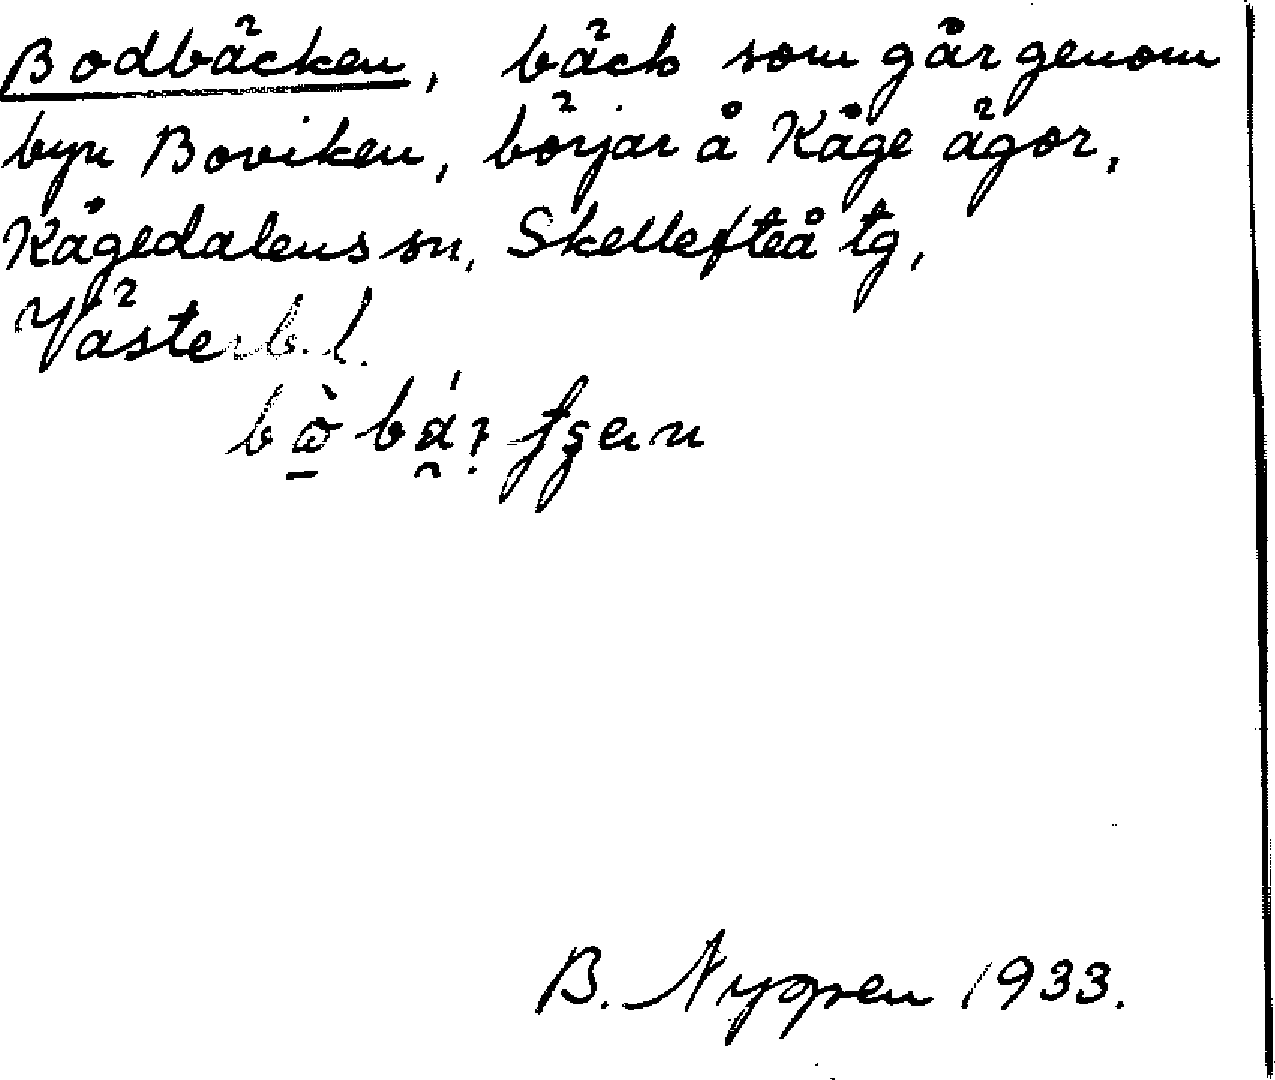 Bodbäcken, bäck som går genom
byn Boviken, börjar å Kåge ägor,
Kågedalens sn, Skellefteå tg,
Västerb. l.
B. Nygren 1933.